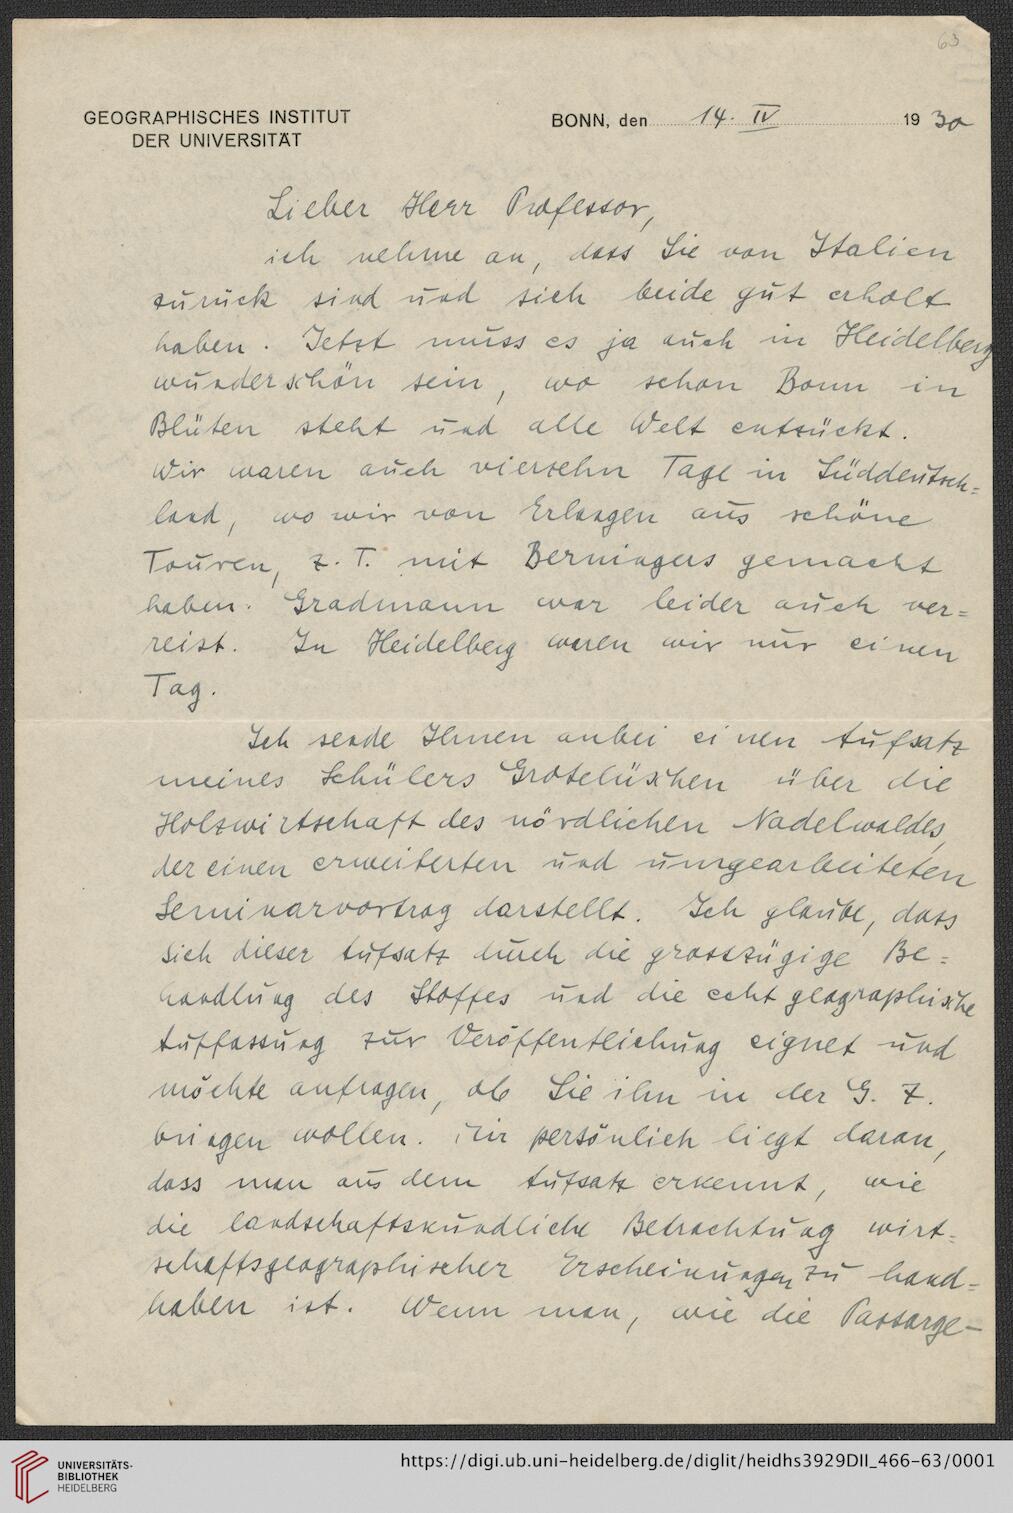 63
GEOGRAPHISCHES INSTITUT
DER UNIVERSITÄT
BONN, den 14. IV 1930
Lieber Herr Professor,
ich nehme an, dass Sie von Italien
zurück sind und sich beide gut erholt
haben. Jetzt muss es ja auch in Heidelberg
wunderschön sein, wo schon Bonn in
Blüten steht und alle Welt entzückt.
Wir waren auch vierzehn Tage in Süddeutsch=
land, wo wir von Erlangen aus schöne
Touren, z. T. mit Berningers gemacht
haben. Gradmann war leider auch ver=
reist. In Heidelberg waren wir nur einen
Tag.
Ich sende Ihnen anbei einen Aufsatz
meines Schülers Grotelüschen über die
Holzwirtschaft des nördlichen Nadelwaldes,
der einen erweiterten und umgearbeiteten
Seminarvortrag darstellt. Ich glaube, dass
sich dieser Aufsatz durch die grosszügige Be=
handlung des Stoffes und die echt geographische
Auffassung zur Veröffentlichung eignet und
möchte anfragen, ob Sie ihn in der G. Z.
bringen wollen. Mir persönlich liegt daran,
dass man aus dem Aufsatz erkennt, wie
die landschaftskundliche Betrachtung wirt=
schaftsgeographischer Erscheinungen zu hand=
haben ist. Wenn man, wie die Passarge-
UNIVERSITÄTS-
BIBLIOTHEK
HEIDELBERG
https://digi.ub.uni-heidelberg.de/diglit/heidhs3929DII_466-63/0001